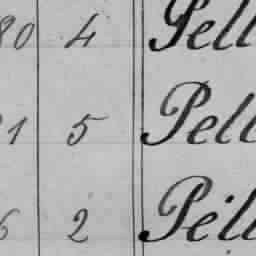 80 4 Pell
21 5 Pell
6 2 Pell